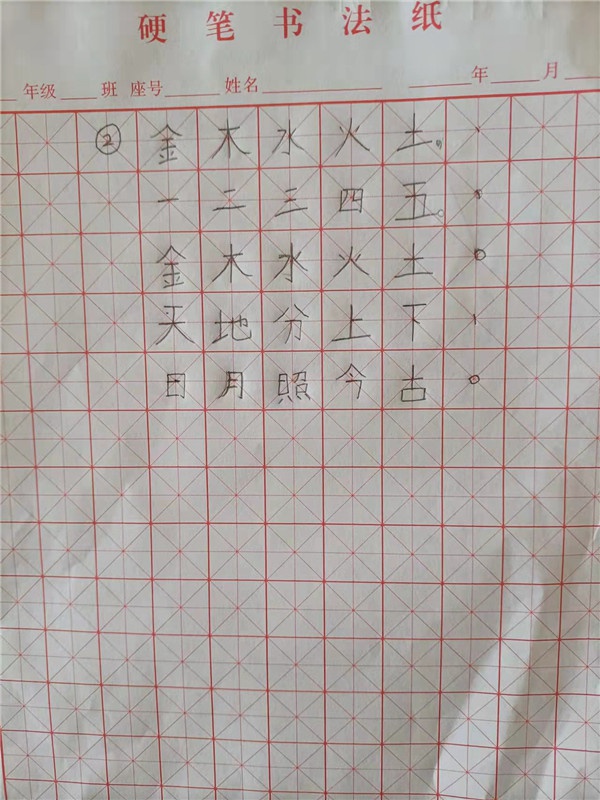 硬笔书法纸
年级 班 座号 姓名 年 月
② 金木水火土，
一二三四五。
金木水火土。
天地分上下，
日月照今古。